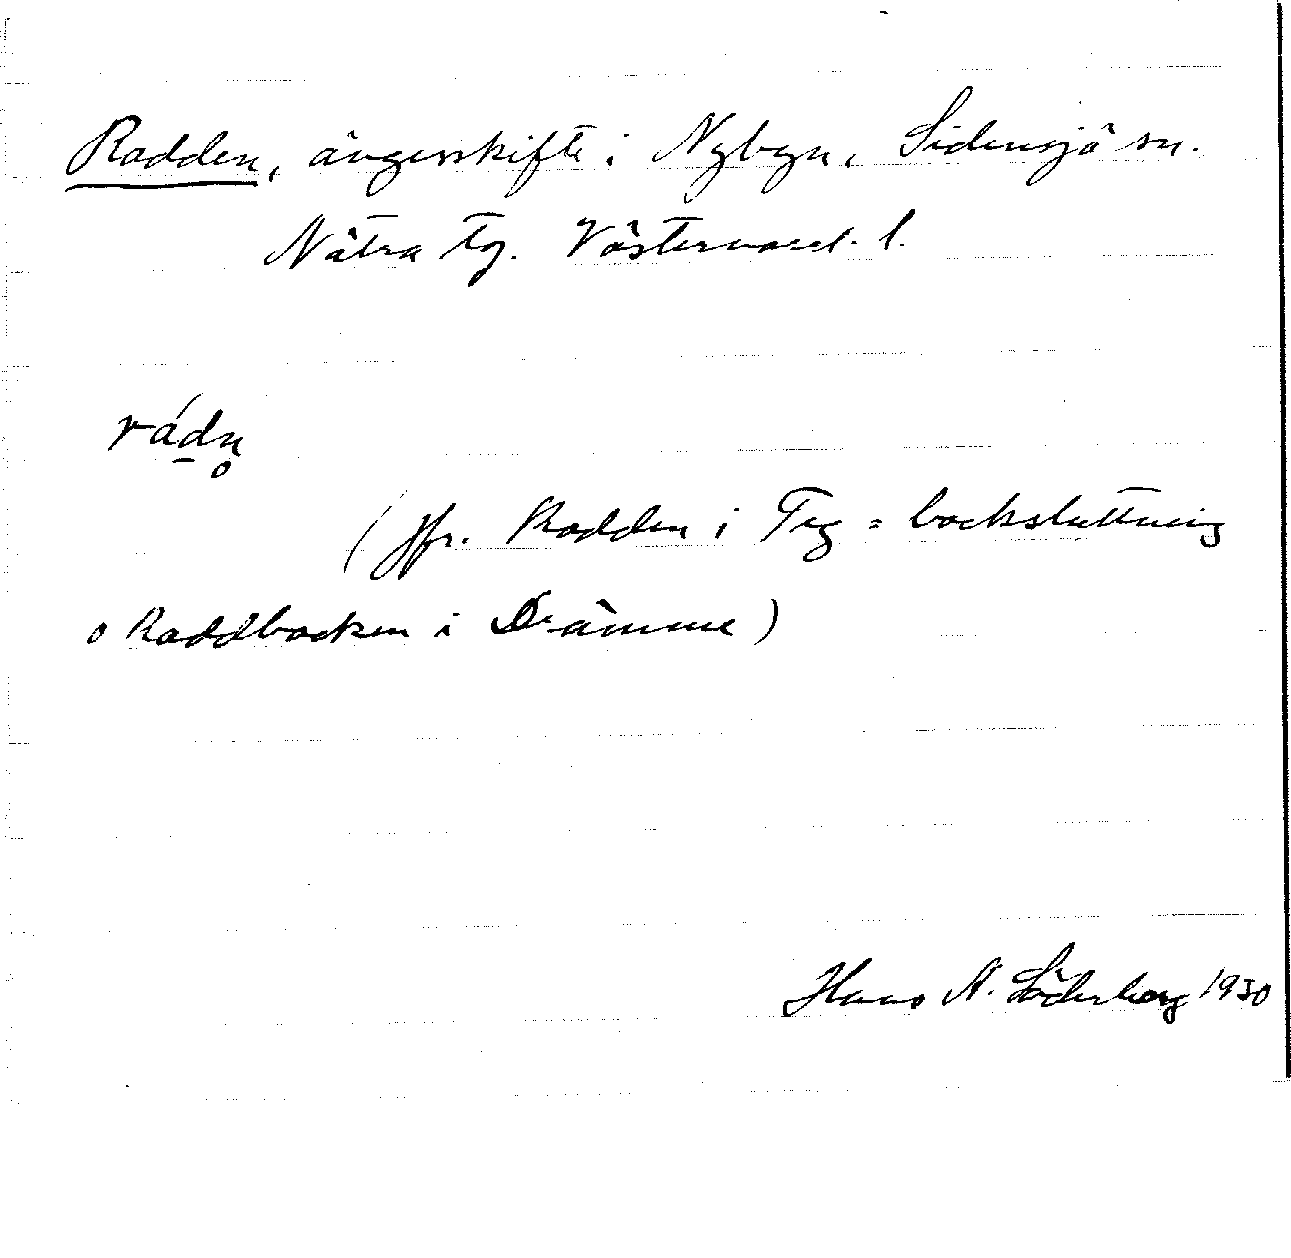 Radden, ängesskifte i Nybyn, Sidensjö sn.
Nätra tg. Västernorrl. l.
rádn̥
(jfr. Radden i Teg = backsluttning
o Raddbacken i Drömme)
Hans N. Söderberg 1930